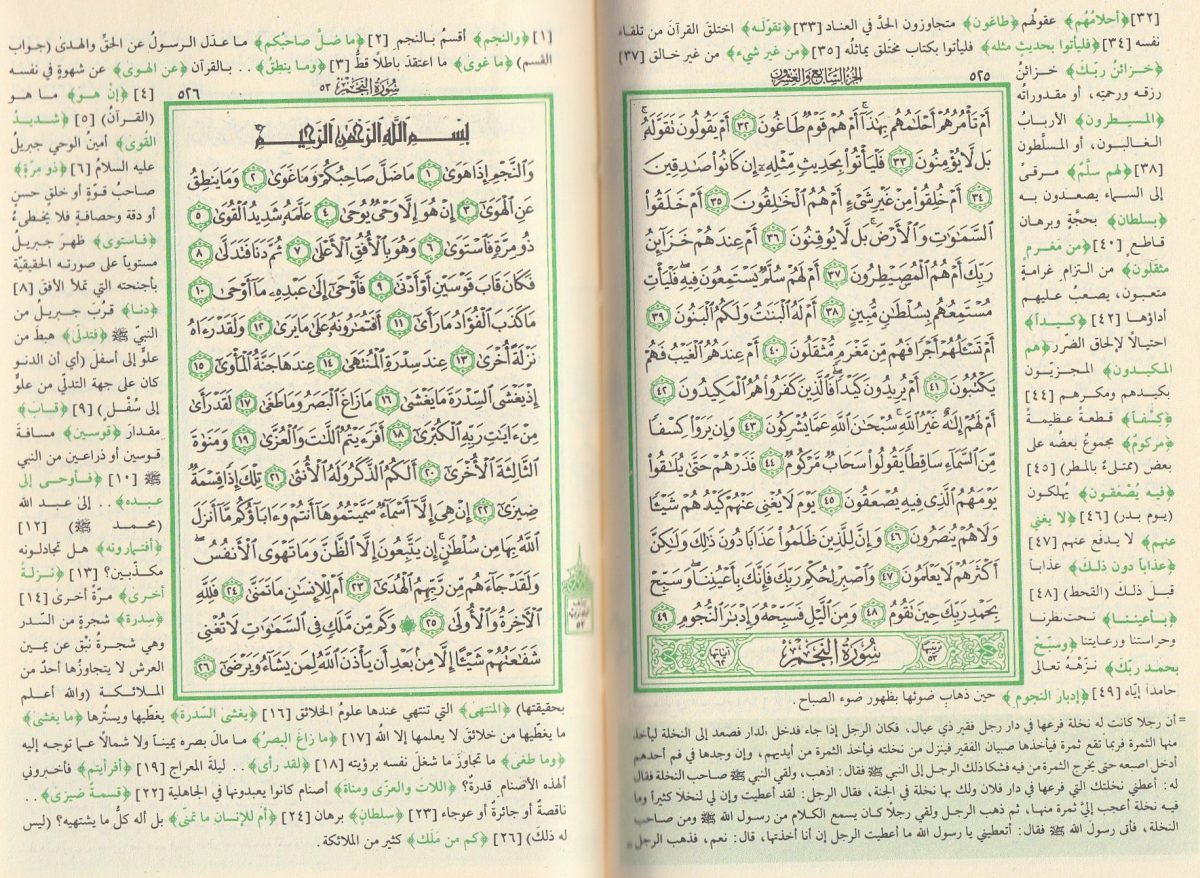 [٣٢] ﴿أحلامُهُم﴾ عقولُهم ﴿طاغون﴾ متجاوزون الحدَّ في العناد [٣٣] ﴿تقوَّلَه﴾ اختلقَ القرآنَ من تلقاء
نفسه [٣٤] ﴿فليأتوا بحديثٍ مثله﴾ فليأتوا بكتاب مختلَق يماثلُه [٣٥] ﴿من غير شيء﴾ من غير خالق [٣٧]
﴿خزائنُ ربِّك﴾ خزائنُ
رزقه ورحمتِه، أو مقدوراتُه
﴿المسيطرون﴾ الأربابُ
الغالبون، أو المسلَّطون
[٣٨] ﴿لهم سلَّم﴾ مرقىً
إلى السماء يصعدون به
﴿بسلطان﴾ بحجَّةٍ وبرهان
قاطع [٤٠] ﴿من مَغرمٍ
مثقلون﴾ من التزام غرامةٍ
متعبون، يصعبُ عليهم
أداؤها [٤٢] ﴿كيداً﴾
احتيالاً لإلحاق الضّرر ﴿هم
المكيدون﴾ المجزيّون
بكيدهم ومكرهم [٤٤]
﴿كِسْفاً﴾ قطعةً عظيمةً
﴿مركوم﴾ مجموعٌ بعضُه على
بعض (ممتلىءٌ بالمطر) [٤٥]
﴿فيه يُصْعَقون﴾ يُهلكون
(يوم بدر) [٤٦] ﴿لا يغني
عنهم﴾ لا يدفع عنهم [٤٧]
﴿عذاباً دون ذلك﴾ عذاباً
قبل ذلك (القحط) [٤٨]
﴿بأعيننا﴾ تحت نظرنا
وحراستنا ورعايتنا ﴿وسبّحْ
بحمد ربك﴾ نزّهْهُ تعالى
حامداً إيّاه [٤٩] ﴿إدبارَ النجوم﴾ حين ذهابِ ضوئها بظهور ضوء الصباح.
الجزء السابع والعشرون ٥٢٥
أَمْ تَأْمُرُهُمْ أَحْلَٰمُهُم بِهَٰذَآ أَمْ هُمْ قَوْمٌ طَاغُونَ ٣٢ أَمْ يَقُولُونَ تَقَوَّلَهُۥ
بَل لَّا يُؤْمِنُونَ ٣٣ فَلْيَأْتُوا۟ بِحَدِيثٍ مِّثْلِهِۦٓ إِن كَانُوا۟ صَٰدِقِينَ
٣٤ أَمْ خُلِقُوا۟ مِنْ غَيْرِ شَىْءٍ أَمْ هُمُ ٱلْخَٰلِقُونَ ٣٥ أَمْ خَلَقُوا۟
ٱلسَّمَٰوَٰتِ وَٱلْأَرْضَ بَل لَّا يُوقِنُونَ ٣٦ أَمْ عِندَهُمْ خَزَآئِنُ
رَبِّكَ أَمْ هُمُ ٱلْمُصَۜيْطِرُونَ ٣٧ أَمْ لَهُمْ سُلَّمٌ يَسْتَمِعُونَ فِيهِ فَلْيَأْتِ
مُسْتَمِعُهُم بِسُلْطَٰنٍ مُّبِينٍ ٣٨ أَمْ لَهُ ٱلْبَنَٰتُ وَلَكُمُ ٱلْبَنُونَ ٣٩
أَمْ تَسْـَٔلُهُمْ أَجْرًا فَهُم مِّن مَّغْرَمٍ مُّثْقَلُونَ ٤٠ أَمْ عِندَهُمُ ٱلْغَيْبُ فَهُمْ
يَكْتُبُونَ ٤١ أَمْ يُرِيدُونَ كَيْدًا فَٱلَّذِينَ كَفَرُوا۟ هُمُ ٱلْمَكِيدُونَ ٤٢
أَمْ لَهُمْ إِلَٰهٌ غَيْرُ ٱللَّهِ سُبْحَٰنَ ٱللَّهِ عَمَّا يُشْرِكُونَ ٤٣ وَإِن يَرَوْا۟ كِسْفًا
مِّنَ ٱلسَّمَآءِ سَاقِطًا يَقُولُوا۟ سَحَابٌ مَّرْكُومٌ ٤٤ فَذَرْهُمْ حَتَّىٰ يُلَٰقُوا۟
يَوْمَهُمُ ٱلَّذِى فِيهِ يُصْعَقُونَ ٤٥ يَوْمَ لَا يُغْنِى عَنْهُمْ كَيْدُهُمْ شَيْـًٔا
وَلَا هُمْ يُنصَرُونَ ٤٦ وَإِنَّ لِلَّذِينَ ظَلَمُوا۟ عَذَابًا دُونَ ذَٰلِكَ وَلَٰكِنَّ
أَكْثَرَهُمْ لَا يَعْلَمُونَ ٤٧ وَٱصْبِرْ لِحُكْمِ رَبِّكَ فَإِنَّكَ بِأَعْيُنِنَا وَسَبِّحْ
بِحَمْدِ رَبِّكَ حِينَ تَقُومُ ٤٨ وَمِنَ ٱلَّيْلِ فَسَبِّحْهُ وَإِدْبَٰرَ ٱلنُّجُومِ ٤٩
ترتيبها ٥٣ سُورَةُ النَّجْمِ آياتها ٦٢
= أن رجلاً كانت له نخلة فرعها في دار رجل فقير ذي عيال، فكان الرجل إذا جاء فدخل الدار فصعد إلى النخلة ليأخذ
منها الثمرة فربما تقع ثمرة فيأخذها صبيان الفقير فينزل من نخلته فيأخذ الثمرة من أيديهم، وإن وجدها في فم أحدهم
أدخل اصبعه حتى يخرج الثمرة من فيه فشكا ذلك الرجل إلى النبي ﷺ فقال: اذهب، ولقي النبي ﷺ صاحب النخلة فقال
له: أعطني نخلتك التي فرعها في دار فلان ولك بها نخلة في الجنة، فقال الرجل: لقد أعطيت وإن لي لنخلاً كثيراً وما
فيه نخلة أعجب إليَّ ثمرة منها، ثم ذهب الرجل ولقي رجلاً كان يسمع الكلام من رسول الله ﷺ ومن صاحب
النخلة، فأتى رسول الله ﷺ فقال: أتعطيني يا رسول الله ما أعطيت الرجل إن أنا أخذتها، قال: نعم، فذهب الرجل =
[١] ﴿والنجم﴾ أقسمُ بالنجم [٢] ﴿ما ضلَّ صاحبُكم﴾ ما عدَل الرسولُ عن الحقِّ والهدى (جواب
القسم) ﴿ما غوى﴾ ما اعتقدَ باطلاً قطُّ [٣] ﴿وما ينطقُ﴾ .. بالقرآن ﴿عن الهوى﴾ عن شهوةٍ في نفسه
[٤] ﴿إنْ هوَ﴾ ما هو
(القرآنُ) [٥] ﴿شديدُ
القُوى﴾ أمينُ الوحي جبريلُ
عليه السلامُ [٦] ﴿ذو مِرّةٍ﴾
صاحبُ قوّةٍ أو خلقٍ حسنٍ
أو دقة وحصافةٍ فلا يخطىءُ
﴿فاستوى﴾ ظهرَ جبريل
مستوياً على صورته الحقيقيّة
بأجنحته التي تملأ الأفقَ [٨]
﴿دنا﴾ قرُبَ جبريلُ من
النبيّ ﷺ ﴿فتدلّى﴾ هبطَ من
علوٍّ إلى أسفلَ (رأي أن الدنو
كان على جهة التدلّي من علوٍّ
إلى سُفْلٍ) [٩] ﴿قابَ﴾
مقدارَ ﴿قوسين﴾ مسافةَ
قوسين أو ذراعين من النبي
ﷺ [١٠] ﴿فأوحى إلى
عبده﴾ .. إلى عبد الله
(محمد ﷺ) [١٢]
﴿أفتمارونه﴾ هل تجادلونه
مكذّبين؟ [١٣] ﴿نزلةً
أخرى﴾ مرّةً أخرى [١٤]
﴿سدرة﴾ شجرةٍ من السّدر
وهي شجرةُ نَبْقٍ عن يمين
العرش لا يتجاوزُها أحدٌ من
الملائكة (والله أعلم
بحقيقتها) ﴿المنتهى﴾ التي تنتهي عندها علومُ الخلائق [١٦] ﴿يغشى السّدرة﴾ يغطّيها ويسترُها ﴿ما يغشى﴾
ما يغطّيها من خلائقَ لا يعلمها إلا اللهُ [١٧] ﴿ما زاغَ البصرُ﴾ ما مالَ بصره يميناً ولا شمالاً عما توجه إليه
﴿وما طغى﴾ ما تجاوزَ ما شغلَ نفسه برؤيته [١٨] ﴿لقد رأى﴾ .. ليلةَ المعراج [١٩] ﴿أفرأيتم﴾ فأخبروني
ألهذه الأصنام قدرةٌ؟ ﴿اللات والعزّى ومناة﴾ أصنام كانوا يعبدونها في الجاهلية [٢٢] ﴿قسمةٌ ضيزى﴾ ..
ناقصةٌ أو جائرةٌ أو عوجاء [٢٣] ﴿سلطان﴾ برهان [٢٤] ﴿أم للإنسان ما تمنّى﴾ بل أله كلُّ ما يشتهيه؟ (ليس
له ذلك) [٢٦] ﴿كم من مَلَك﴾ كثير من الملائكة.
سُورَةُ النَّجْمِ ٥٣ ٥٢٦
بِسْمِ ٱللَّهِ ٱلرَّحْمَٰنِ ٱلرَّحِيمِ
وَٱلنَّجْمِ إِذَا هَوَىٰ ١ مَا ضَلَّ صَاحِبُكُمْ وَمَا غَوَىٰ ٢ وَمَا يَنطِقُ
عَنِ ٱلْهَوَىٰٓ ٣ إِنْ هُوَ إِلَّا وَحْىٌ يُوحَىٰ ٤ عَلَّمَهُۥ شَدِيدُ ٱلْقُوَىٰ ٥
ذُو مِرَّةٍ فَٱسْتَوَىٰ ٦ وَهُوَ بِٱلْأُفُقِ ٱلْأَعْلَىٰ ٧ ثُمَّ دَنَا فَتَدَلَّىٰ ٨
فَكَانَ قَابَ قَوْسَيْنِ أَوْ أَدْنَىٰ ٩ فَأَوْحَىٰٓ إِلَىٰ عَبْدِهِۦ مَآ أَوْحَىٰ ١٠
مَا كَذَبَ ٱلْفُؤَادُ مَا رَأَىٰٓ ١١ أَفَتُمَٰرُونَهُۥ عَلَىٰ مَا يَرَىٰ ١٢ وَلَقَدْ رَءَاهُ
نَزْلَةً أُخْرَىٰ ١٣ عِندَ سِدْرَةِ ٱلْمُنتَهَىٰ ١٤ عِندَهَا جَنَّةُ ٱلْمَأْوَىٰٓ ١٥
إِذْ يَغْشَى ٱلسِّدْرَةَ مَا يَغْشَىٰ ١٦ مَا زَاغَ ٱلْبَصَرُ وَمَا طَغَىٰ ١٧ لَقَدْ رَأَىٰ
مِنْ ءَايَٰتِ رَبِّهِ ٱلْكُبْرَىٰٓ ١٨ أَفَرَءَيْتُمُ ٱللَّٰتَ وَٱلْعُزَّىٰ ١٩ وَمَنَوٰةَ
ٱلثَّالِثَةَ ٱلْأُخْرَىٰٓ ٢٠ أَلَكُمُ ٱلذَّكَرُ وَلَهُ ٱلْأُنثَىٰ ٢١ تِلْكَ إِذًا قِسْمَةٌ
ضِيزَىٰٓ ٢٢ إِنْ هِىَ إِلَّآ أَسْمَآءٌ سَمَّيْتُمُوهَآ أَنتُمْ وَءَابَآؤُكُم مَّآ أَنزَلَ
ٱللَّهُ بِهَا مِن سُلْطَٰنٍ إِن يَتَّبِعُونَ إِلَّا ٱلظَّنَّ وَمَا تَهْوَى ٱلْأَنفُسُ
وَلَقَدْ جَآءَهُم مِّن رَّبِّهِمُ ٱلْهُدَىٰٓ ٢٣ أَمْ لِلْإِنسَٰنِ مَا تَمَنَّىٰ ٢٤ فَلِلَّهِ
ٱلْءَاخِرَةُ وَٱلْأُولَىٰ ٢٥ وَكَم مِّن مَّلَكٍ فِى ٱلسَّمَٰوَٰتِ لَا تُغْنِى
شَفَٰعَتُهُمْ شَيْـًٔا إِلَّا مِنۢ بَعْدِ أَن يَأْذَنَ ٱللَّهُ لِمَن يَشَآءُ وَيَرْضَىٰٓ ٢٦